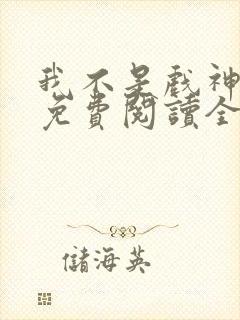 我不是戲神
免費閱讀全
儲海英